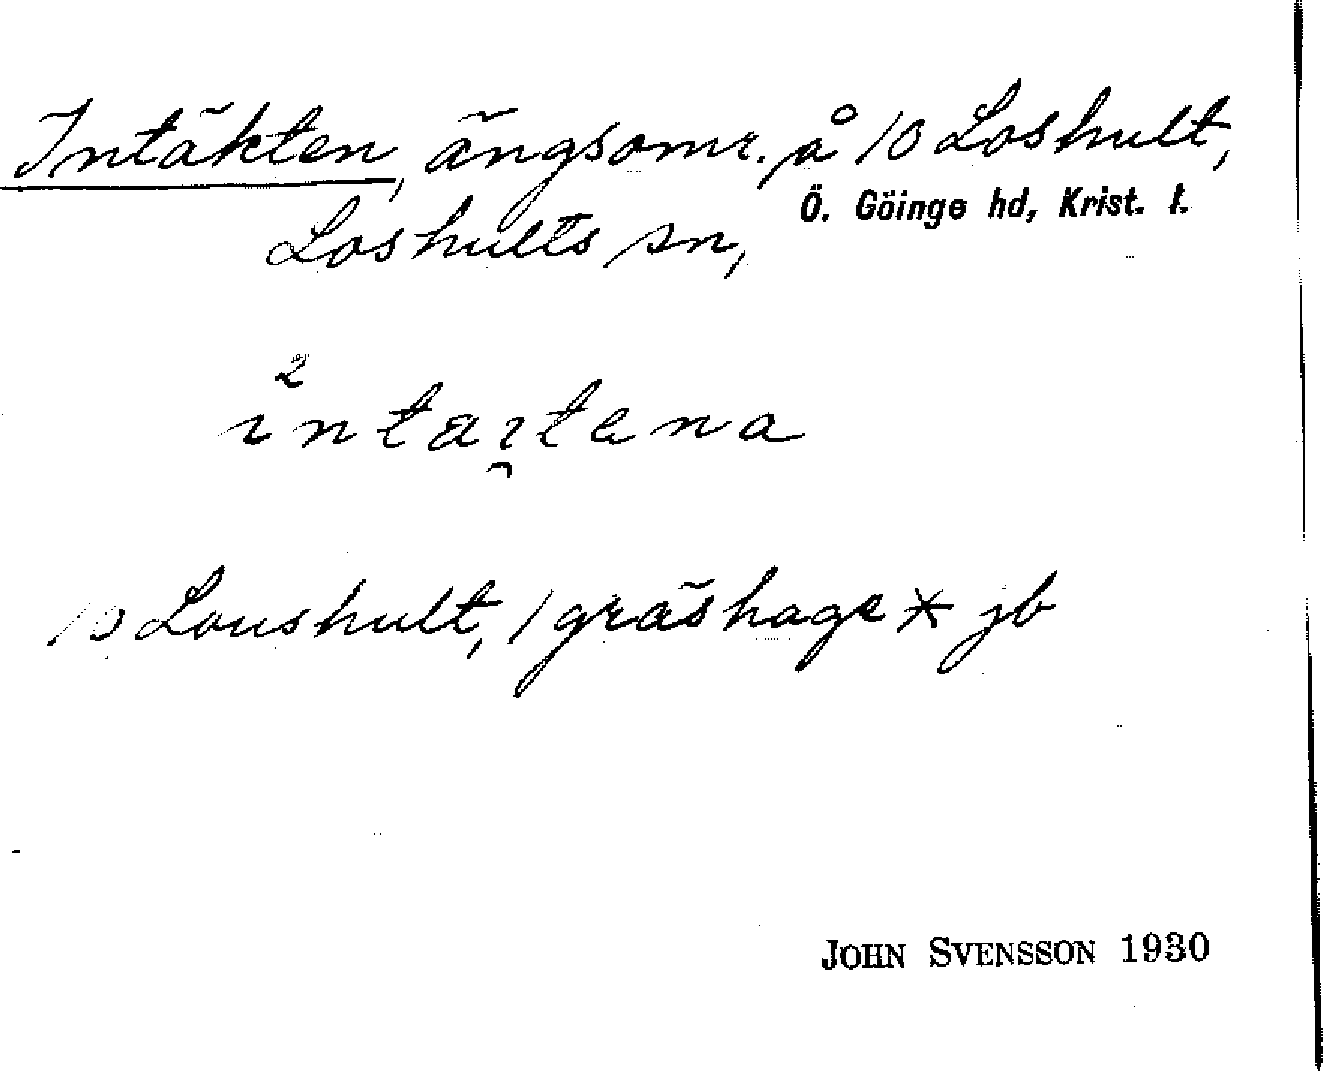 Intäkten, ängsomr. på 10 Loshult,
Ö. Göinge hd, Krist. l.
Loshults sn,
10 Loushult, 1 gräshage * jb
JOHN SVENSSON 1930